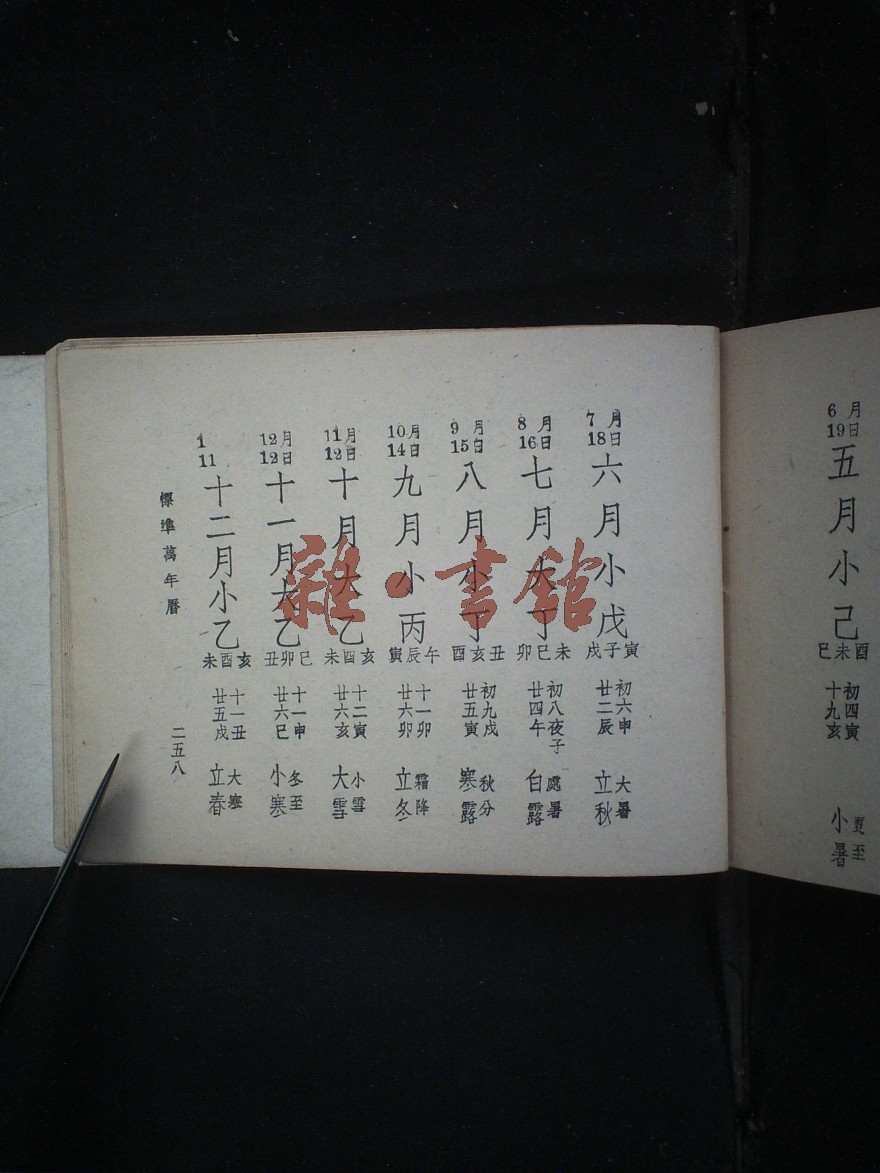 6月
19日
五月小己
酉未巳
初四寅
十九亥
夏至
小暑
7月
18日
六月小戊
寅子戌
初六申
廿二辰
大暑
立秋
8月
16日
七月大丁
未巳卯
初八夜子
廿四午
處暑
白露
9月
15日
八月小丁
丑亥酉
初九戌
廿五寅
秋分
寒露
10月
14日
九月小丙
午辰寅
十一卯
廿六卯
霜降
立冬
11月
12日
十月大乙
亥酉未
十二寅
廿六亥
小雪
大雪
12月
12日
十一月大乙
巳卯丑
十一申
廿六巳
冬至
小寒
1
11
十二月小乙
亥酉未
十一丑
廿五戌
大寒
立春
標準萬年曆
二五八
雜·書館